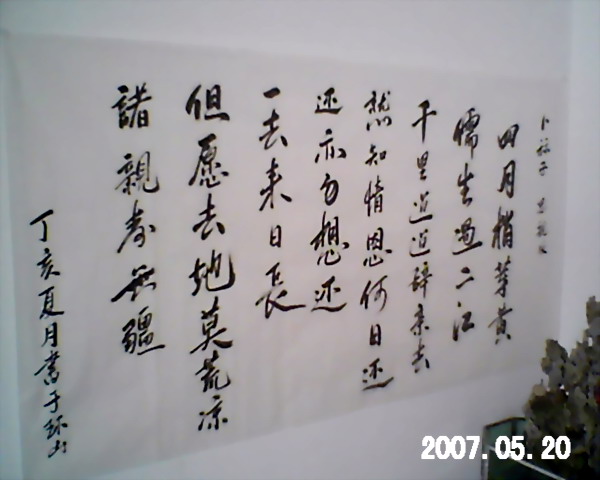 卜算子 思親
四月稍芽黄
儒生過二江
千里迢迢辞亲去
知情恩何日还
还亦勿想还
一去来日長
但愿去地莫荒凉
諸親寿無疆
丁亥夏月書于环山
2007.05.20